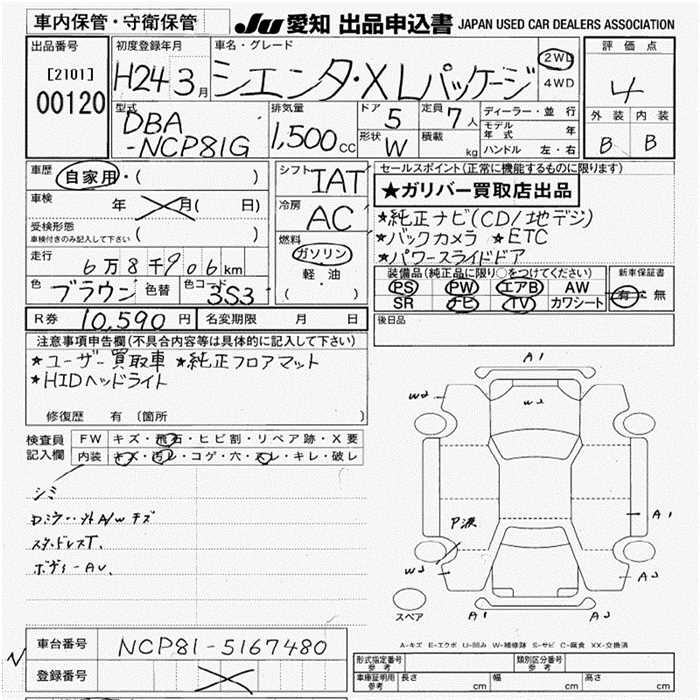 車内保管・守衛保管
JU 愛知 出品申込書 JAPAN USED CAR DEALERS ASSOCIATION
出品番号
[2101]
00120
初度登録年月
H24 3月
車名・グレード
シエンタ・XLパッケージ
2WD
4WD
評価点
4
外装 内装
B B
型式
DBA
-NCP81G
排気量
1,500cc
ドア 5
形状 W
定員 7人
積載 kg
ディーラー・並行
モデル年式 年
ハンドル 左・右
車歴 自家用・( )
車検 年 月( 日)
受検形態
車検付きのみ記入して下さい ( )
走行
6万8千906km
色 ブラウン 色替 色コード 3S3
シフト IAT
冷房 AC
燃料
ガソリン
軽・油
( )
セールスポイント(正常に機能するものに限ります)
★ガリバー買取店出品
★純正ナビ(CD/地デジ)
★バックカメラ ★ETC
★パワースライドドア
装備品(純正品に限り○をつけてください)
PS PW エアB AW
SR ナビ TV カワシート
新車保証書
有・無
R券 10,590円 名変期限 月 日
後日品
注意事項申告欄(不具合内容等は具体的に記入して下さい)
★ユーザー買取車 ★純正フロアマット
★HIDヘッドライト
修復歴 有 (箇所 )
検査員
記入欄
FW キズ・飛石・ヒビ割・リペア跡・X要
内装 キズ・汚レ・コゲ・穴・スレ・キレ・破レ
シミ
スタッドレスT.
ボディーAU.
A1
W2
W2
P波
A1
W3
A2
A1
A2
スペア
A-キズ E-エクボ U-凹み W-補修跡 S-サビ C-腐食 XX-交換済
車台番号 NCP81-5167480
登録番号
形式指定番号
参考
類別区分番号
参考
車庫証明用
参考
長さ cm 幅 cm 高さ cm